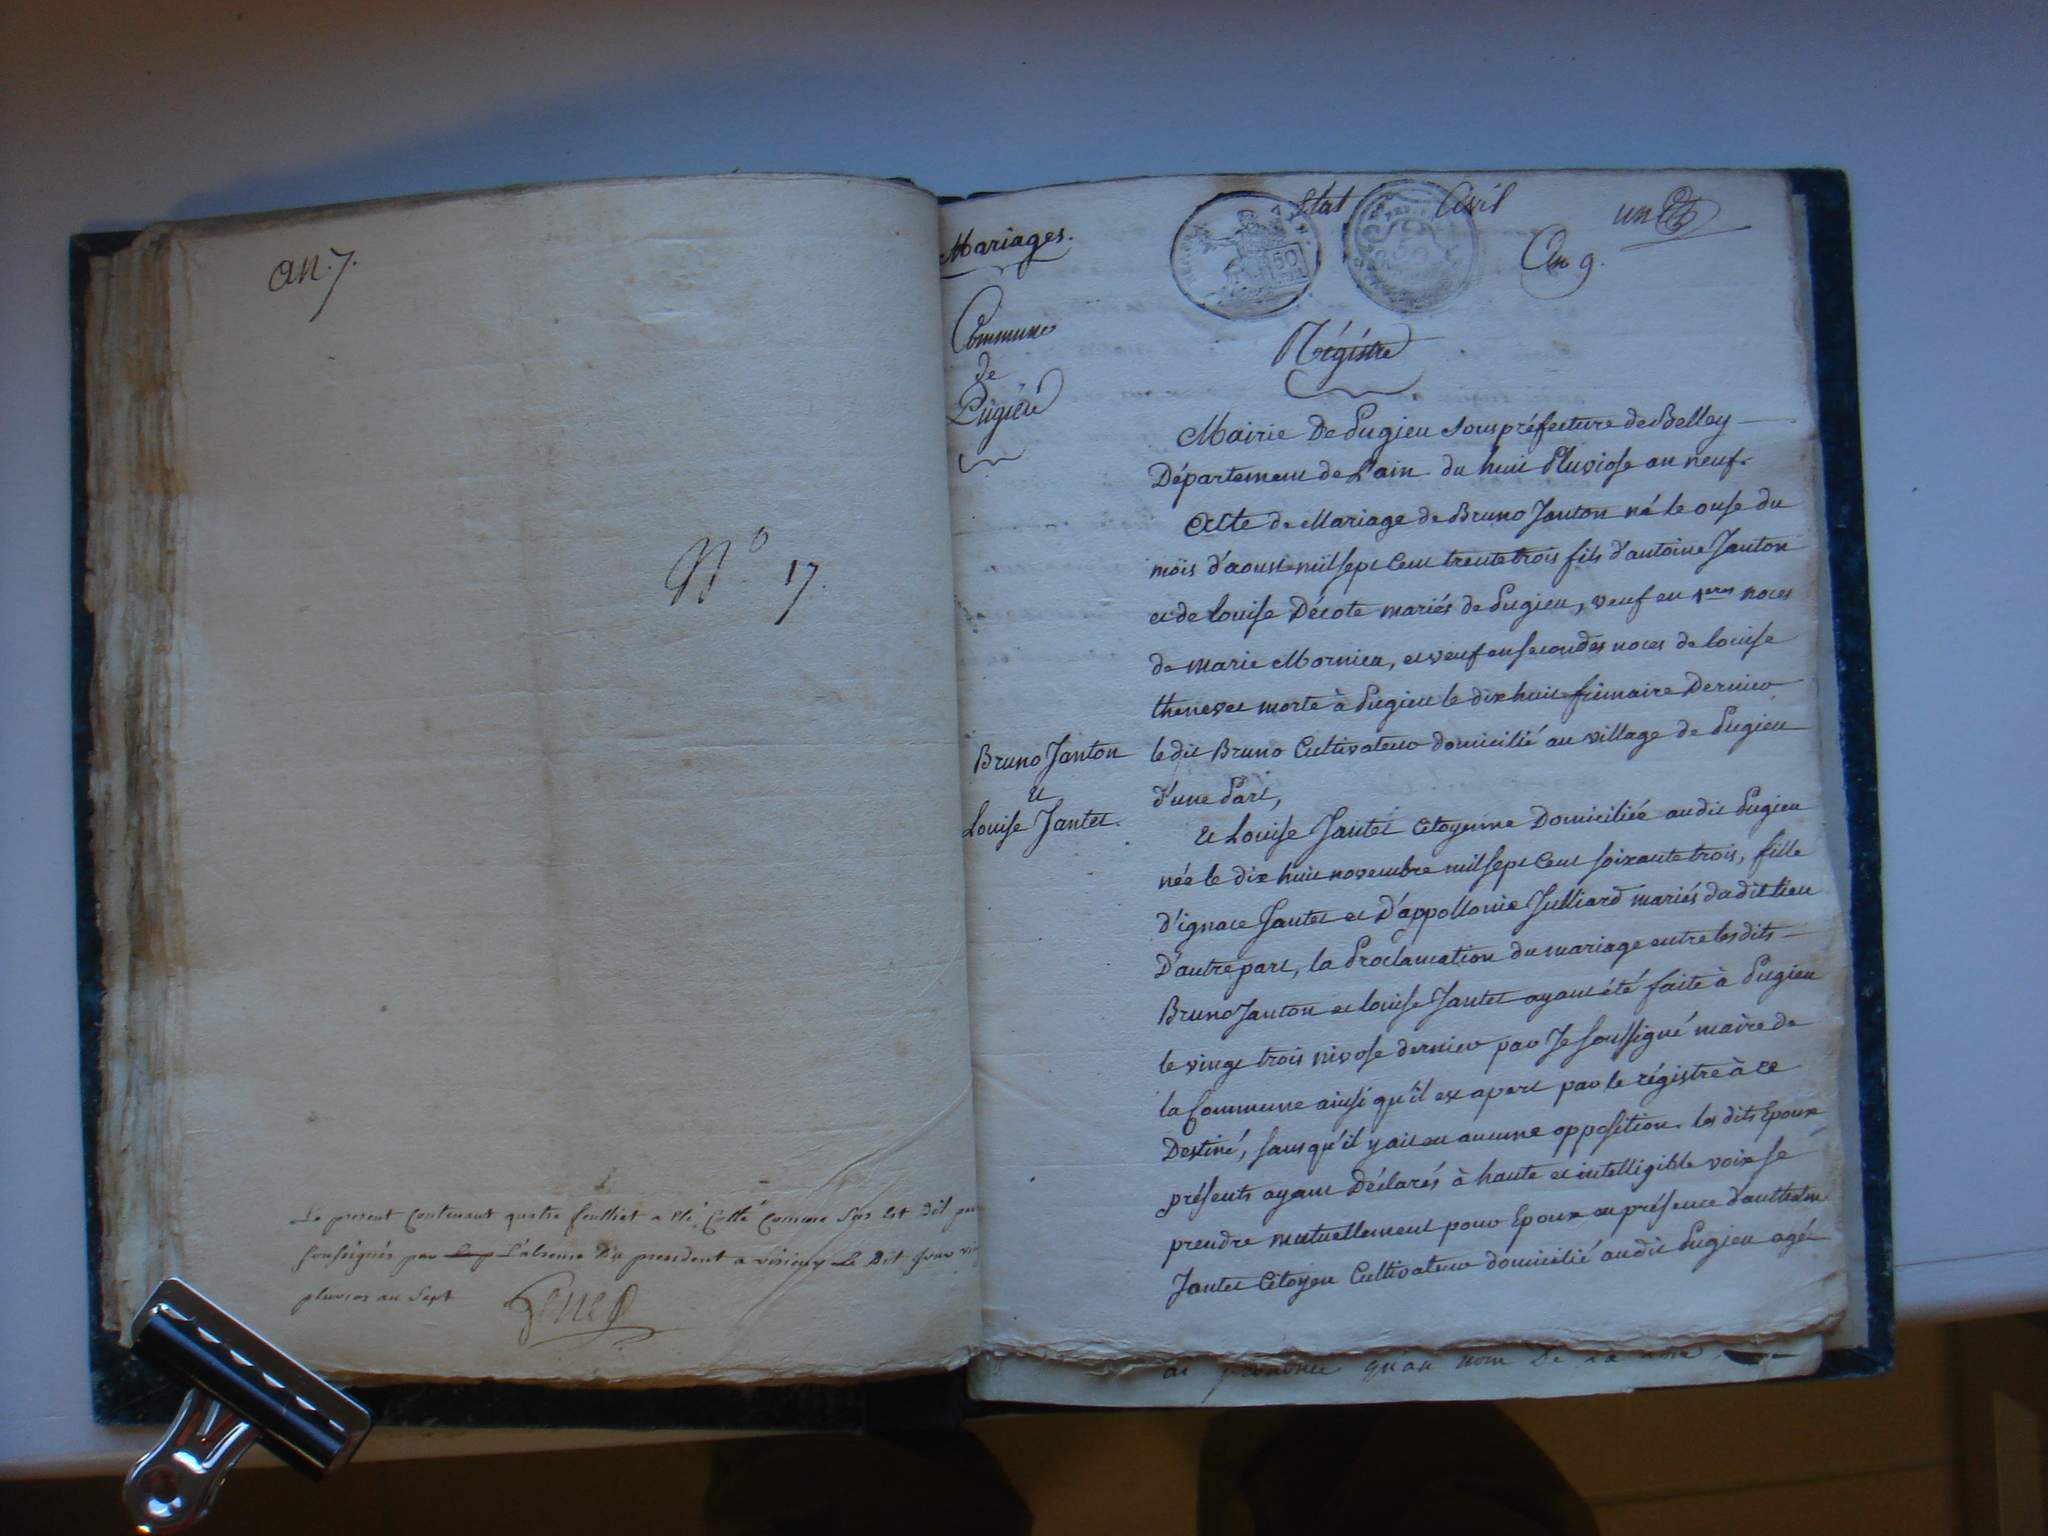 an. 7.
N.º 17.
Le present Contenant quatre feulliet a été Cotté Comme Sus Est Dit par
Soussignés par L'absence Du president a virieux Le Dit jour
pluvios an Sept
Mariages.
Etat Civil
un
An 9.
Commune
de
Pugieu
Régistre
Mairie De Pugieu souspréfecture de Belley
Département de L'ain. du huit Pluviose an neuf.
Acte de Mariage de Bruno Janton né le onse du
mois d'aoust mil sept Cent trente trois fils d'antoine Janton
et de louise Décote mariés de Pugieu, veuf en 1eres noces
de marie Mornieu, et veuf en secondes noces de louise
thenevet morte à Pugieu le dix huit frimaire Dernier
le dit Bruno Cultivateur domicilié au village de Pugieu
d'une Part,
Bruno Janton
et
Louise Jantet.
et Louise Jantet Citoyenne Domiciliée au dit Pugieu
née le dix huit novembre mil sept Cent soixante trois, fille
d'ignace Jantet et D'appollonie Julliard mariés dudit lieu
D'autre part, la Proclamation du mariage entre les dits
Bruno Janton et louise Jantet ayant été faite à Pugieu
le vingt trois nivose dernier par Je soussigné maire de
la Commune ainsi qu'il est apert par le régistre à ce
Destiné, sans qu'il y ait eu aucune opposition. les dits Epoux
présents ayant Déclarés à haute et intelligible voix se
prendre mutuellement pour Epoux en présence d'anthelme
Jantet Citoyen Cultivateur domicilié au dit Pugieu agé
qu'au nom De La